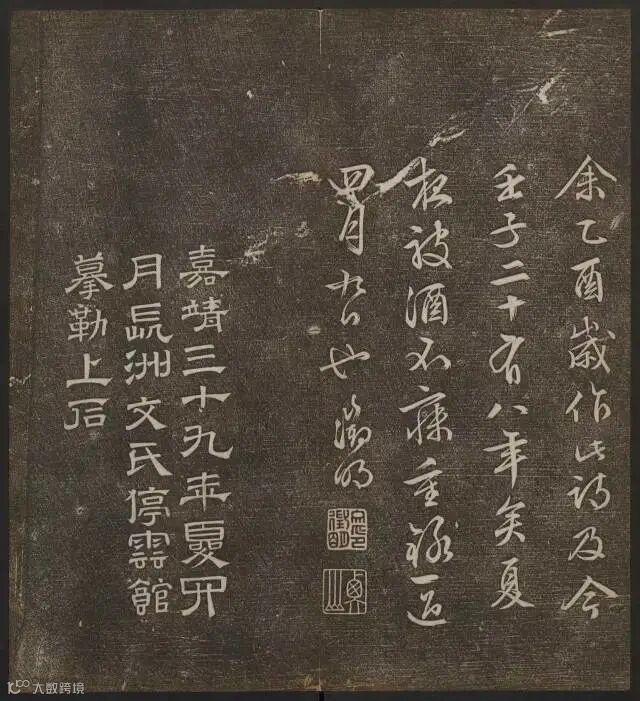 余乙酉歲作此詩及今
壬子二十有八年矣夏
夜被酒不寐重録一過
四月 日也 徵明
嘉靖三十九年夏四
月長洲文氏停雲館
摹勒上石
大数跨境